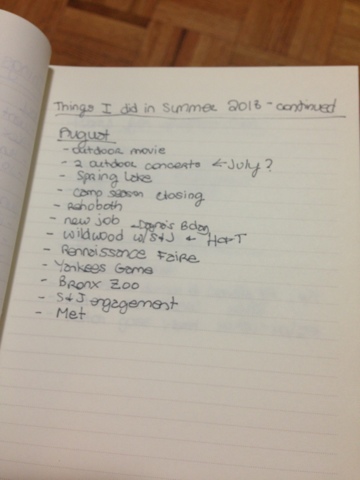 Things I did in Summer 2013 - continued
August
- outdoor movie
- 2 outdoor concerts ← July?
- Spring Lake
- camp season closing
- Rehoboth
- new job - Dana's Bday
- Wildwood w/ S+J + H or T
- Rennaissance Faire
- Yankees Game
- Bronx Zoo
- S+J engagement
- Met